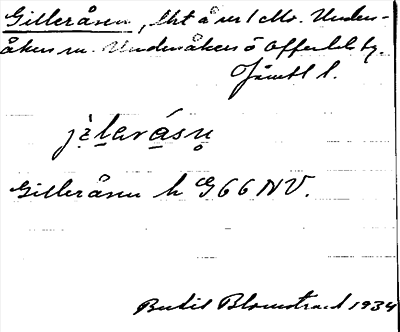 Gilleråsen, lht å rer 1 Mo. Unders-
åkers sn. Undersåkers o Offerdals tg.
Jämtl l.
jìlerásn̥
Gilleråsen h G66NV.
Bertil Blomstrand 1934